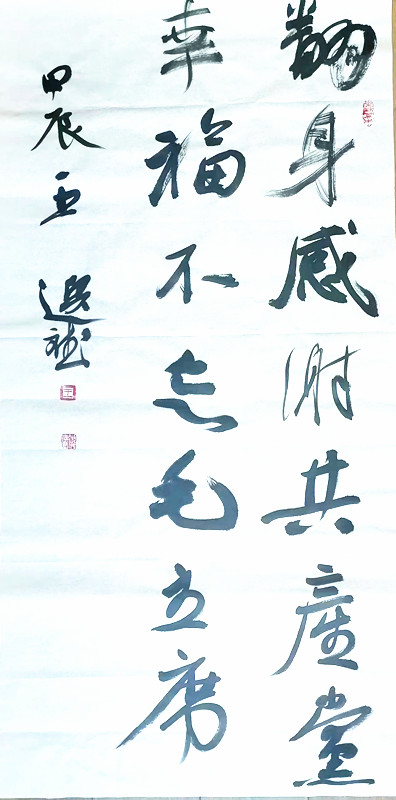 翻身感谢共產党
幸福不忘毛主席
甲辰